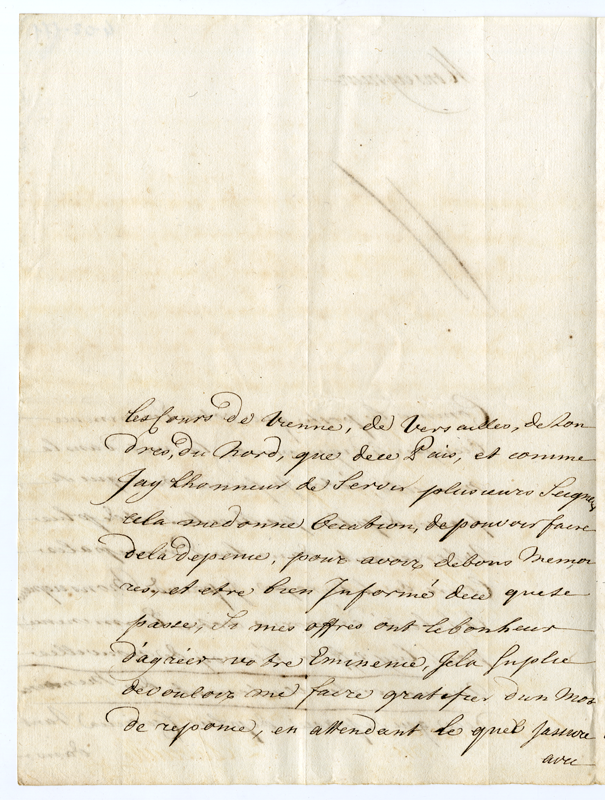 les Cours de Vienne, de Versailles, de Lon
dres, du Nord, que dece Païs, et comme
Jay Lhonneur de Servir plusieurs Seigneu
cela medonne Occation, depouvoir faire
dela depence, pour avoir debons Memoi
res, et etre bien Informé dece quese
passe, Si mes offres ont lebonheur
d'agréer votre Eminence, Jela Suplie
devouloir me faire gratifier d'un Mot
de reponce, en attendant le quel Jassure
avec